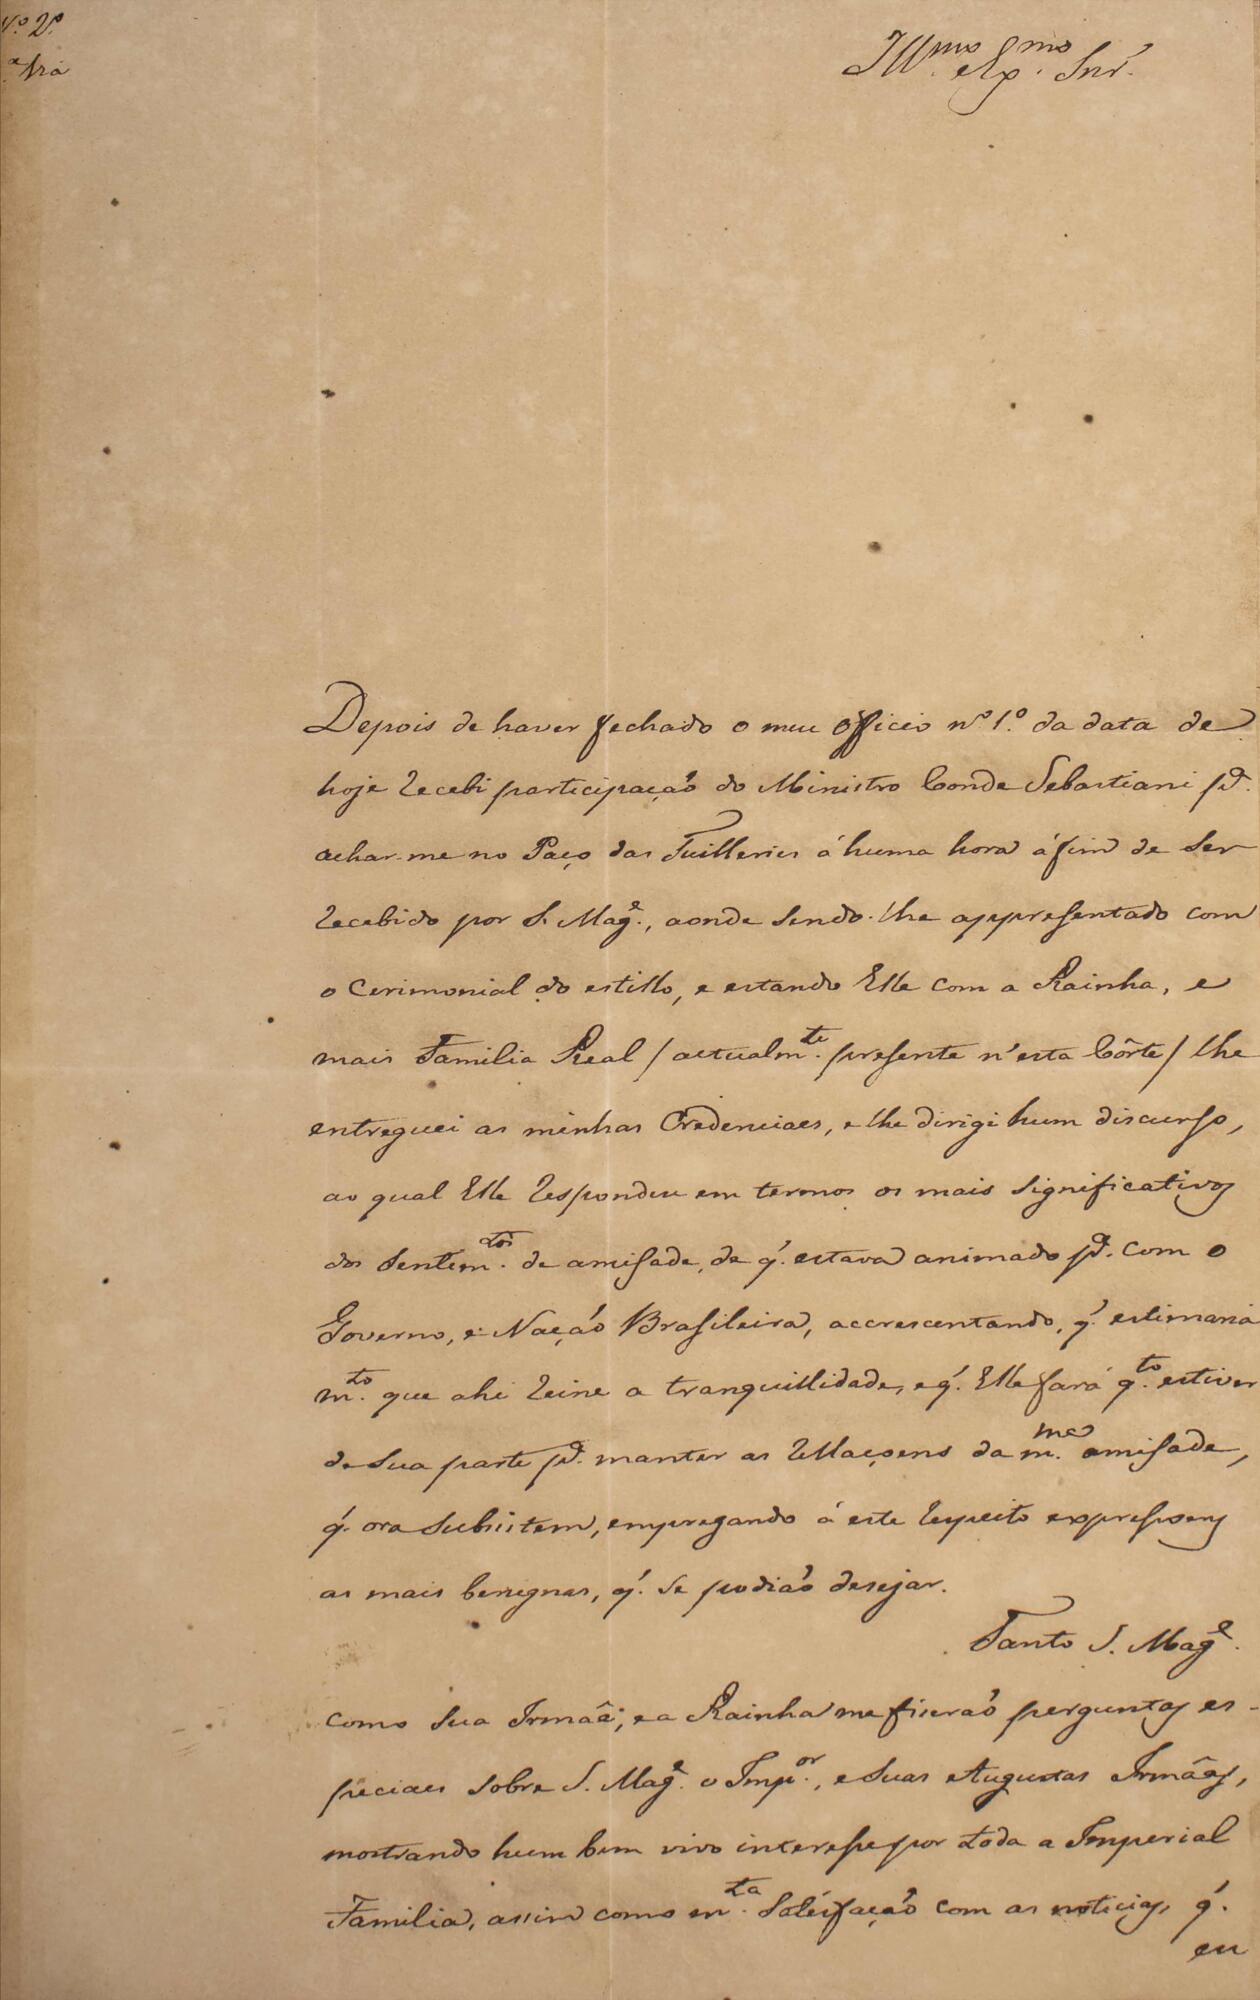 Nº 2º
Illmo. Exmo. Snr.
Depois de haver fechado o meu officio nº 1º. da data de
hoje recebi participação do Ministro Conde Sebastiani pª.
achar-me no Paço das Tuilleries á huma hora áfim de ser
recebido por S. Mage., aonde sendo-lhe appresentado com
o Cerimonial do estillo, e estando Elle com a Rainha, e
mais Familia Real / actualmte. presente n'esta Côrte / lhe
entreguei as minhas Credenciaes, e lhe dirigi hum discurso,
ao qual Elle respondeu em termos os mais significativos
dos sentemtos. de amisade, de q'. estava animado pª. com o
Governo, e Nação Brasileira, accrescentando, q'. estimaria
mto. que ahi reine a tranquillidade, e q'. Elle fará qto. estiver
de sua parte pª. manter as rellaçoens da mma. amisade,
q'. ora subsistem, empregando á este respeito expressoens
as mais benignas, q'. se podião desejar.
Tanto S. Mage.
como sua Irmãa; e a Rainha me fiserão perguntas es-
peciaes sobre S. Mage. o Impor., e suas Augustas Irmãas,
mostrando hum bem vivo interesse por toda a Imperial
Familia, assim como mta. satisfação com as noticias, q'.
eu